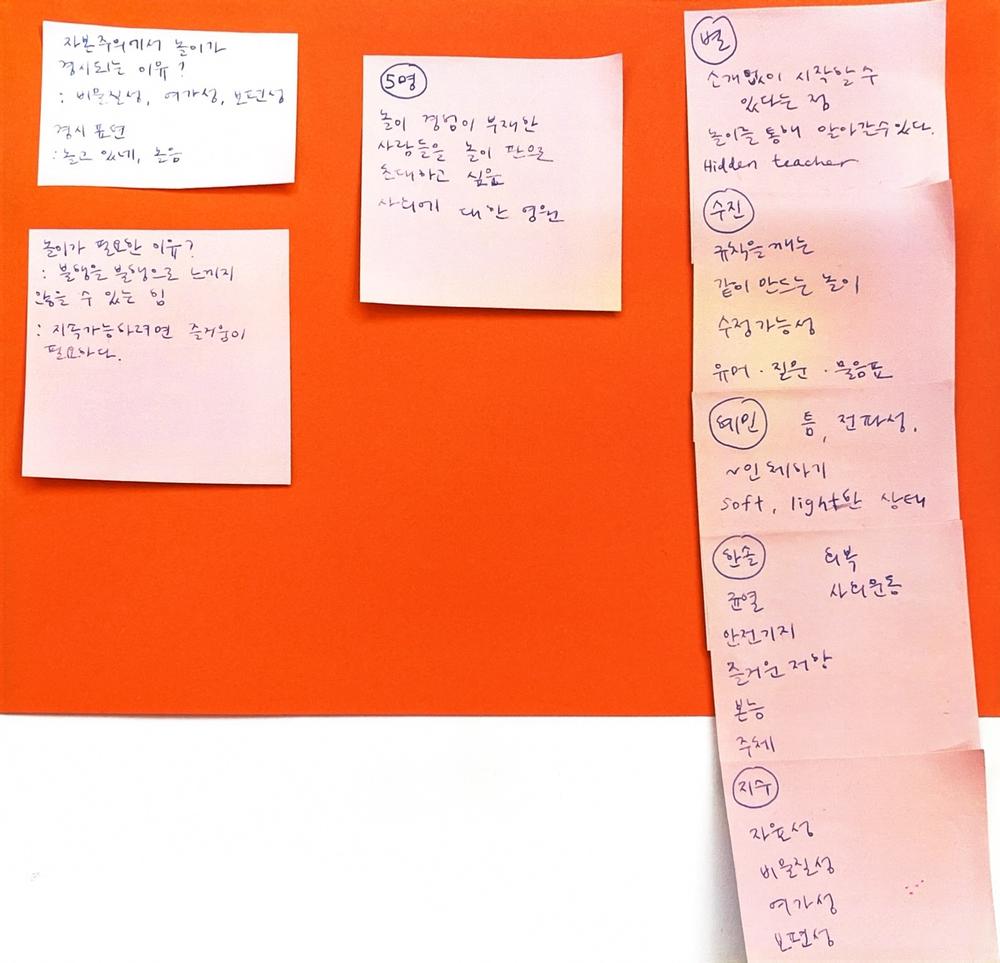 자본주의에서 놀이가
경시되는 이유?
: 비물질성, 여가성, 보편성
경시 표현
: 놀고 있네, 논음
놀이가 필요한 이유?
: 불행을 불행으로 느끼지
않을 수 있는 힘
: 지속가능하려면 즐거움이
필요하다.
5명
놀이 경험이 부재한
사람들을 놀이 판으로
초대하고 싶음
사회에 대한 염원
별
소개없이 시작할 수
있다는 점
놀이를 통해 알아갈수있다.
Hidden teacher
수진
규칙을 깨는
같이 만드는 놀이
수정가능성
유머 · 질문 · 물음표
혜인 틈, 전파성.
~인 체하기
soft, light한 상태
한솔
회복
사회운동
균열
안전기지
즐거운 저항
본능
주체
지수
자율성
비물질성
여가성
보편성